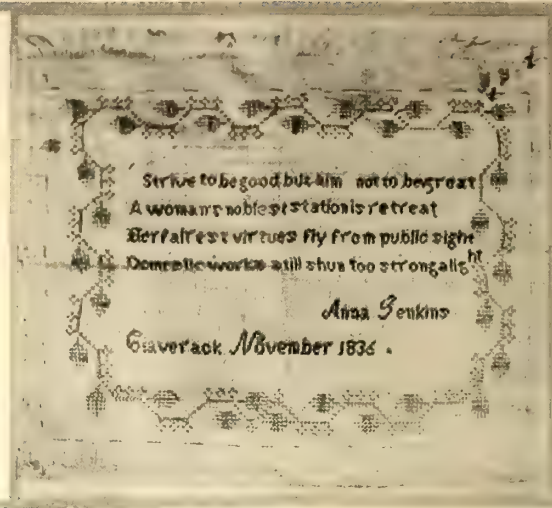 Strive to be good but aim not to be great
A woman's noblest station is retreat
Her fairest virtues fly from public sight
Domestic worth still shun too strong a light
Anna Jenkins
Claverack November 1836.